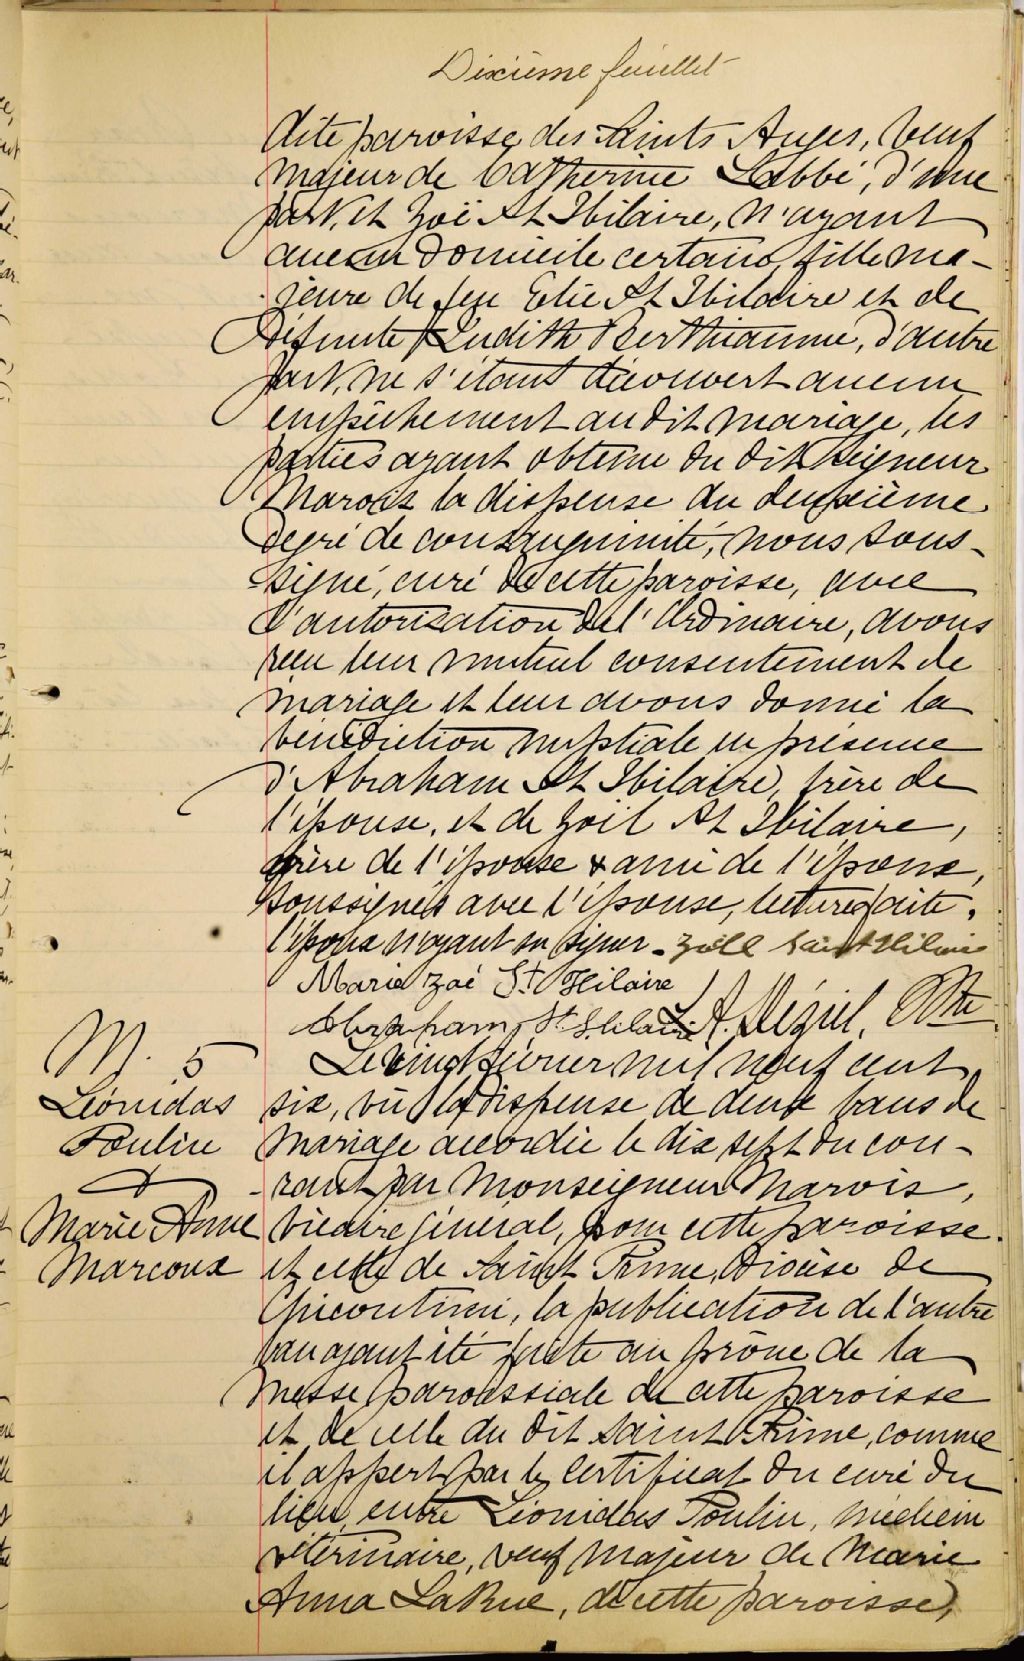 Dixième feuillet
dite paroisse des Saints Anges, veuf
majeur de Catherine Labbé, d'une
part, et Zoë St Hilaire, n'ayant
aucun domicile certain, fille ma-
jeure de feu Elie St Hilaire et de
défunte Judith Berthiaume, d'autre
part, ne s'étant découvert aucun
empêchement au dit mariage, les
parties ayant obtenu du dit Seigneur
Marois la dispense du deuxième
degré de consanguinité, nous sous-
signé, curé de cette paroisse, avec
l'autorisation de l'Ordinaire, avons
reçu leur mutuel consentement de
mariage et leur avons donné la
bénédiction nuptiale en présence
d'Abraham St Hilaire, frère de
l'épouse, et de Zoël St Hilaire,
frère de l'épouse & ami de l'époux,
soussignés avec l'épouse, lecture faite.
l'époux n'ayant su signer - Zoël Saint Hilaire
Marie Zoé St Hilaire
Abraham St Hilaire A. Déziel, Ptre
M. 5
Léonidas
Poulin
&
Marie Anne
Marcoux
Le vingt février mil neuf cent
six, vû la dispense de deux bans de
mariage accordée le dix sept du cou-
rant par Monseigneur Marois,
Vicaire Général, pour cette paroisse
et celle de Saint Prime, Diocèse de
Chicoutimi, la publication de l'autre
ban ayant été faite au prône de la
messe paroissiale de cette paroisse
et de celle du dit Saint Prime, comme
il appert par le certificat du curé du
lieu, entre Léonidas Poulin, médecin
vétérinaire, veuf majeur de Marie
Anna LaRue, de cette paroisse,